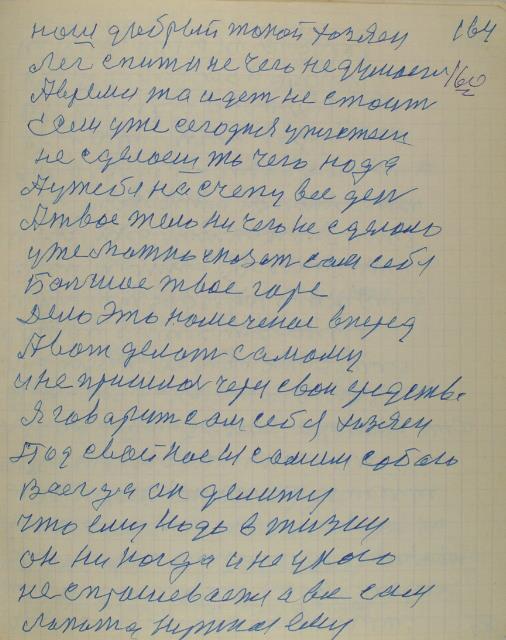 наш добрый такой хозяен 164
Лег спити не чего не думает 160
А времи та идет не стоит
Если уже сегодня
не сделоеш то чего нада
А у тебя на счету все ден
А твое тело ни чего не сделоло
уже можно сказат сам себя
Балчшое твое горе
Дело Это намеченое вперед
А вот делат самому
и не пришлос чере свои средства
Я говарит сам себя хозяен
Под свай нос и самим собою
Всегда он
что ему надо в жизни
он ни когда и не у кого
не спрашевает а все сам
Лопата нужна ему